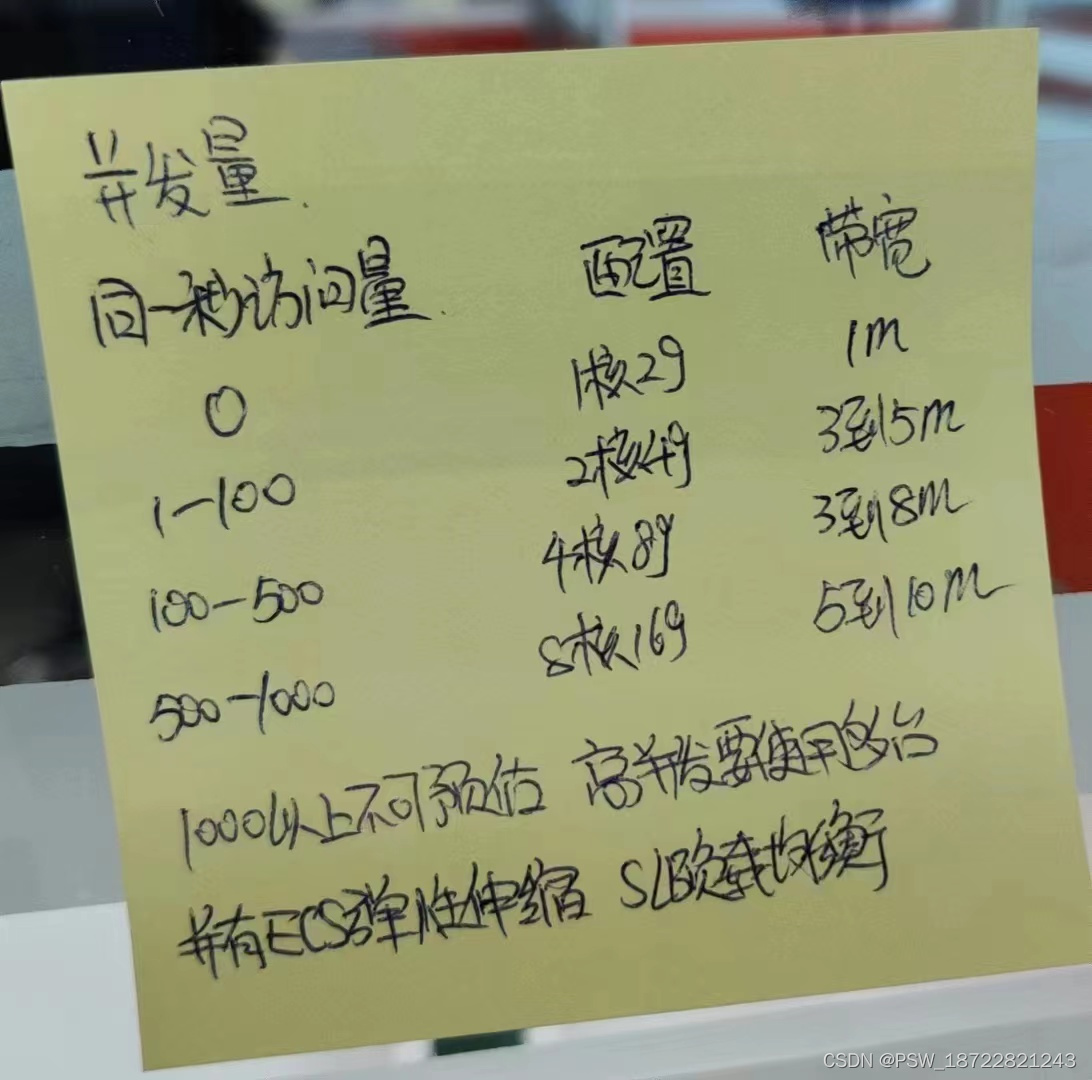 并发量.
同一秒访问量. 配置 带宽
0 1核2g 1m
1-100 2核4g 3到5m
100-500 4核8g 3到8m
500-1000 8核16g 5到10m
1000以上不可预估 高并发要使用多台
并有ECS弹性伸缩 SLB负载均衡
CSDN @PSW_18722821243